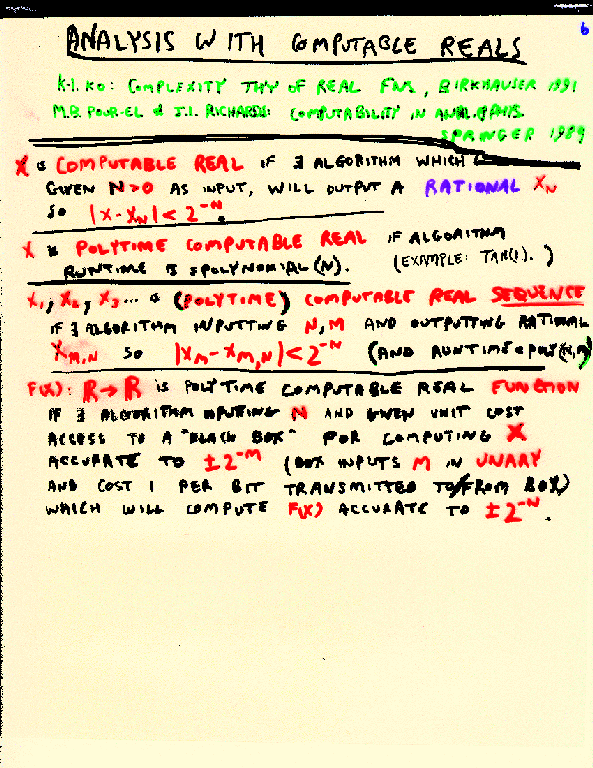 6
ANALYSIS WITH COMPUTABLE REALS
K-I. KO: COMPLEXITY THY OF REAL FNS, BIRKHAUSER 1991
M.B. POUR-EL & J.I. RICHARDS: COMPUTABILITY IN ANAL. & PHYS.
SPRINGER 1989
X IS COMPUTABLE REAL IF ∃ ALGORITHM WHICH
GIVEN N>0 AS INPUT, WILL OUTPUT A RATIONAL X_N
SO |X-X_N| < 2^-N.
X IS POLYTIME COMPUTABLE REAL IF ALGORITHM
RUNTIME IS ≤POLYNOMIAL(N). (EXAMPLE: TAN(1).)
X_1, X_2, X_3... IS (POLYTIME) COMPUTABLE REAL SEQUENCE
IF ∃ ALGORITHM INPUTTING N, M AND OUTPUTTING RATIONAL
X_M,N SO |X_M-X_M,N| < 2^-N (AND RUNTIME≤POLY(N,M)
F(X): R→R IS POLYTIME COMPUTABLE REAL FUNCTION
IF ∃ ALGORITHM INPUTING N AND GIVEN UNIT COST
ACCESS TO A "BLACK BOX" FOR COMPUTING X
ACCURATE TO ±2^-M (BOX INPUTS M IN UNARY
AND COST 1 PER BIT TRANSMITTED TO/FROM BOX)
WHICH WILL COMPUTE F(X) ACCURATE TO ±2^-N.